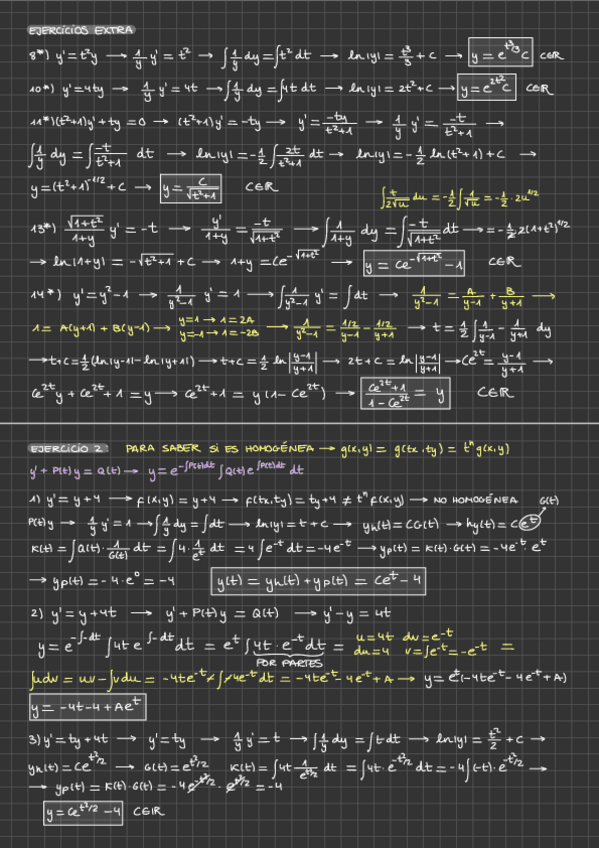 EJERCICIOS EXTRA
8*) y' = t²y → 1/y y' = t² → ∫1/y dy = ∫t² dt → ln|y| = t³/3 + C → y = e^(t³/3) C C∈ℝ
10*) y' = 4ty → 1/y y' = 4t → ∫1/y dy = ∫4t dt → ln|y| = 2t² + C → y = e^(2t²) C C∈ℝ
11*) (t²+1)y' + ty = 0 → (t²+1)y' = -ty → y' = -ty/(t²+1) → 1/y y' = -t/(t²+1) →
∫1/y dy = ∫-t/(t²+1) dt → ln|y| = -1/2 ∫2t/(t²+1) dt → ln|y| = -1/2 ln(t²+1) + C →
y = (t²+1)^(-1/2) + C → y = C/√(t²+1) C∈ℝ
∫t/(2√u) du = -1/2 ∫1/√u = -1/2 · 2u^(1/2)
13*) √(1+t²)/(1+y) y' = -t → y'/(1+y) = -t/√(1+t²) → ∫1/(1+y) dy = ∫-t/√(1+t²) dt → = -1/2 2(1+t²)^(1/2)
→ ln|1+y| = -√(t²+1) + C → 1+y = Ce^(-√(1+t²)) → y = Ce^(-√(1+t²)) - 1 C∈ℝ
14*) y' = y²-1 → 1/(y²-1) y' = 1 → ∫1/(y²-1) y' = ∫dt → 1/(y²-1) = A/(y-1) + B/(y+1) →
1 = A(y+1) + B(y-1) → y=1 → 1=2A y=-1 → 1=-2B → 1/(y²-1) = (1/2)/(y-1) - (1/2)/(y+1) → t = 1/2 ∫1/(y-1) - 1/(y+1) dy
→ t+C = 1/2 (ln|y-1| - ln|y+1|) → t+C = 1/2 ln|(y-1)/(y+1)| → 2t+C = ln|(y-1)/(y+1)| → Ce^(2t) = (y-1)/(y+1) →
Ce^(2t) y + Ce^(2t) + 1 = y → Ce^(2t) + 1 = y(1-Ce^(2t)) → (Ce^(2t)+1)/(1-Ce^(2t)) = y C∈ℝ
EJERCICIO 2. PARA SABER SI ES HOMOGÉNEA → g(x,y) = g(tx,ty) = tⁿ g(x,y)
y' + P(t)y = Q(t) → y = e^(-∫P(t)dt) ∫Q(t)e^(∫P(t)dt) dt
1) y' = y+4 → f(x,y) = y+4 → f(tx,ty) = ty+4 ≠ tⁿ f(x,y) → NO HOMOGÉNEA G(t)
P(t)y → 1/y y' = 1 → ∫1/y dy = ∫dt → ln|y| = t + C → yh(t) = CG(t) → hy(t) = C e^t
K(t) = ∫Q(t) · 1/G(t) dt = ∫4 · 1/e^t dt = 4∫e^-t dt = -4e^-t → yp(t) = K(t)·G(t) = -4e^-t · e^t
→ yp(t) = -4·e⁰ = -4 y(t) = yh(t) + yp(t) = Ce^t - 4
2) y' = y+4t → y' + P(t)y = Q(t) → y'-y = 4t
y = e^(-∫-dt) ∫4t e^(∫-dt) dt = e^t ∫4t · e^-t dt = u = 4t dv = e^-t =
du = 4 v = ∫e^-t = -e^-t
POR PARTES
∫udv = uv - ∫vdu = -4te^-t + ∫+4e^-t dt = -4te^-t - 4e^-t + A → y = e^t(-4te^-t - 4e^-t + A)
y = -4t-4+Ae^t
3) y' = ty+4t → y' = ty → 1/y y' = t → ∫1/y dy = ∫t dt → ln|y| = t²/2 + C →
yh(t) = Ce^(t²/2) → G(t) = e^(t²/2) K(t) = ∫4t 1/e^(t²/2) dt = ∫4t · e^(-t²/2) dt = -4∫(-t)·e^(-t²/2) →
→ yp(t) = K(t)·G(t) = -4e^(-t²/2) · e^(t²/2) = -4
y = Ce^(t²/2) - 4 C∈ℝ